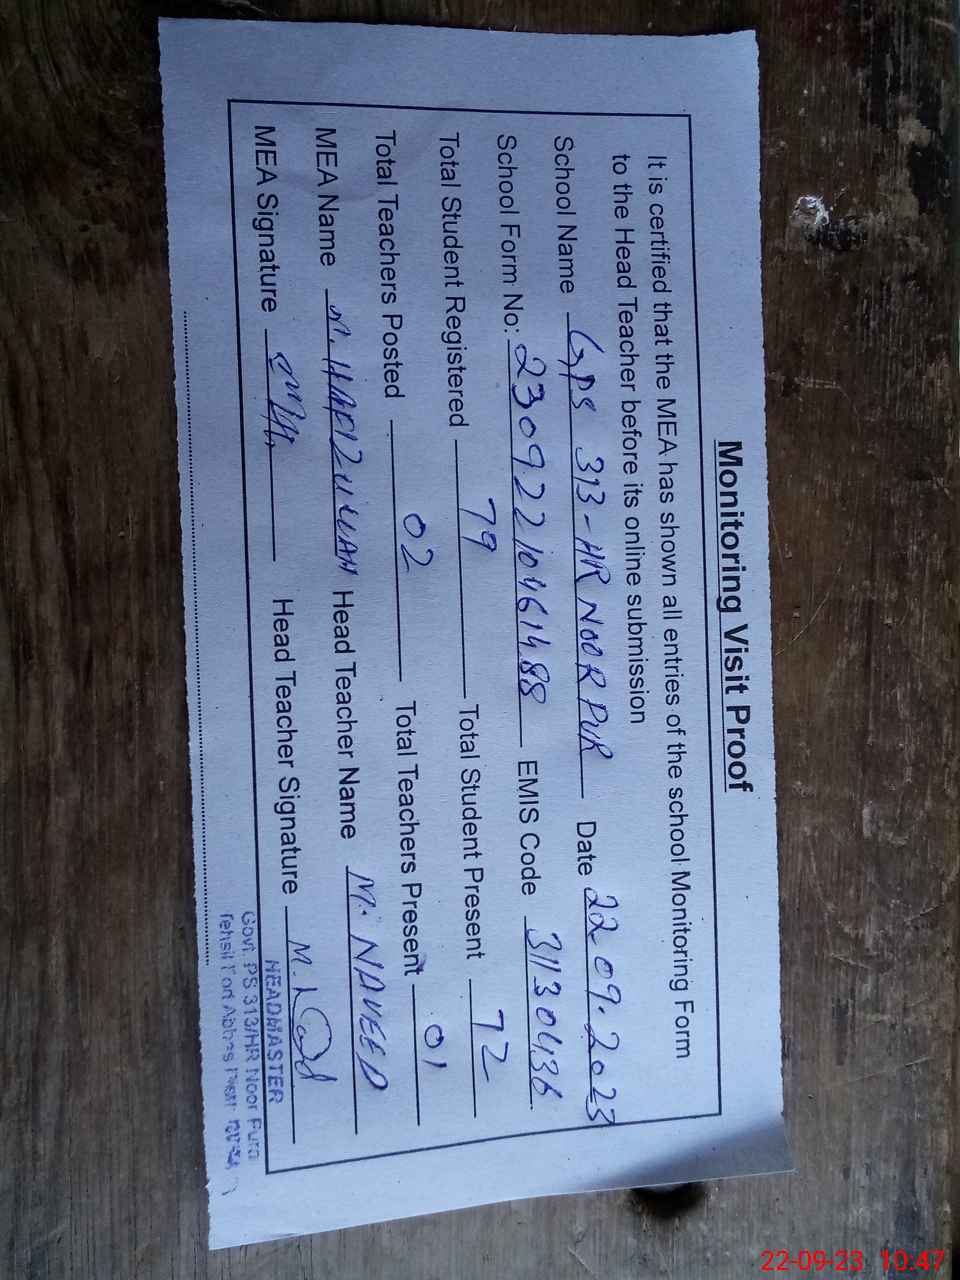 Monitoring Visit Proof
It is certified that the MEA has shown all entries of the school Monitoring Form
to the Head Teacher before its online submission
School Name GPS 313-HR NOOR PUR Date 22.09.2023
School Form No: 23092210461488 EMIS Code 31130436
Total Student Registered 79 Total Student Present 72
Total Teachers Posted 02 Total Teachers Present 01
MEA Name M. Head Teacher Name M. NAVEED
MEA Signature Head Teacher Signature
HEADMASTER
Govt. PS 313/HR Noor Pura
Tehsil Fort Abbas
22-09-23 10:47